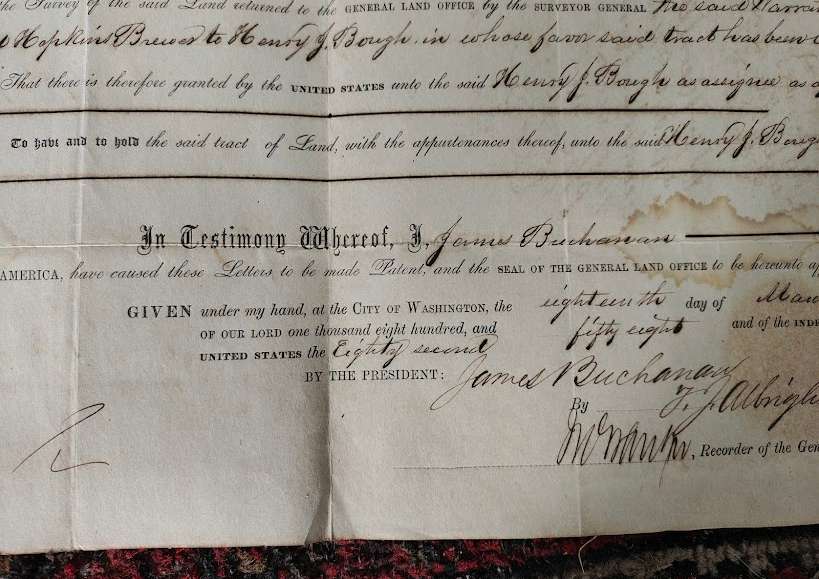 the Survey of the said Land returned to the GENERAL LAND OFFICE by the SURVEYOR GENERAL the said
Hopkins Brewer to Henry J. Bough in whose favor said tract has been
That there is therefore granted by the UNITED STATES unto the said Henry J. Bough as assignee as
To have and to hold the said tract of Land, with the appurtenances thereof, unto the said Henry J. Bough
In Testimony Whereof, I, James Buchanan
AMERICA, have caused these Letters to be made Patent, and the SEAL OF THE GENERAL LAND OFFICE to be hereunto
GIVEN under my hand, at the CITY OF WASHINGTON, the eighteenth day of
OF OUR LORD one thousand eight hundred, and fifty eight and of the
UNITED STATES the Eighty second
BY THE PRESIDENT: James Buchanan
By
, Recorder of the